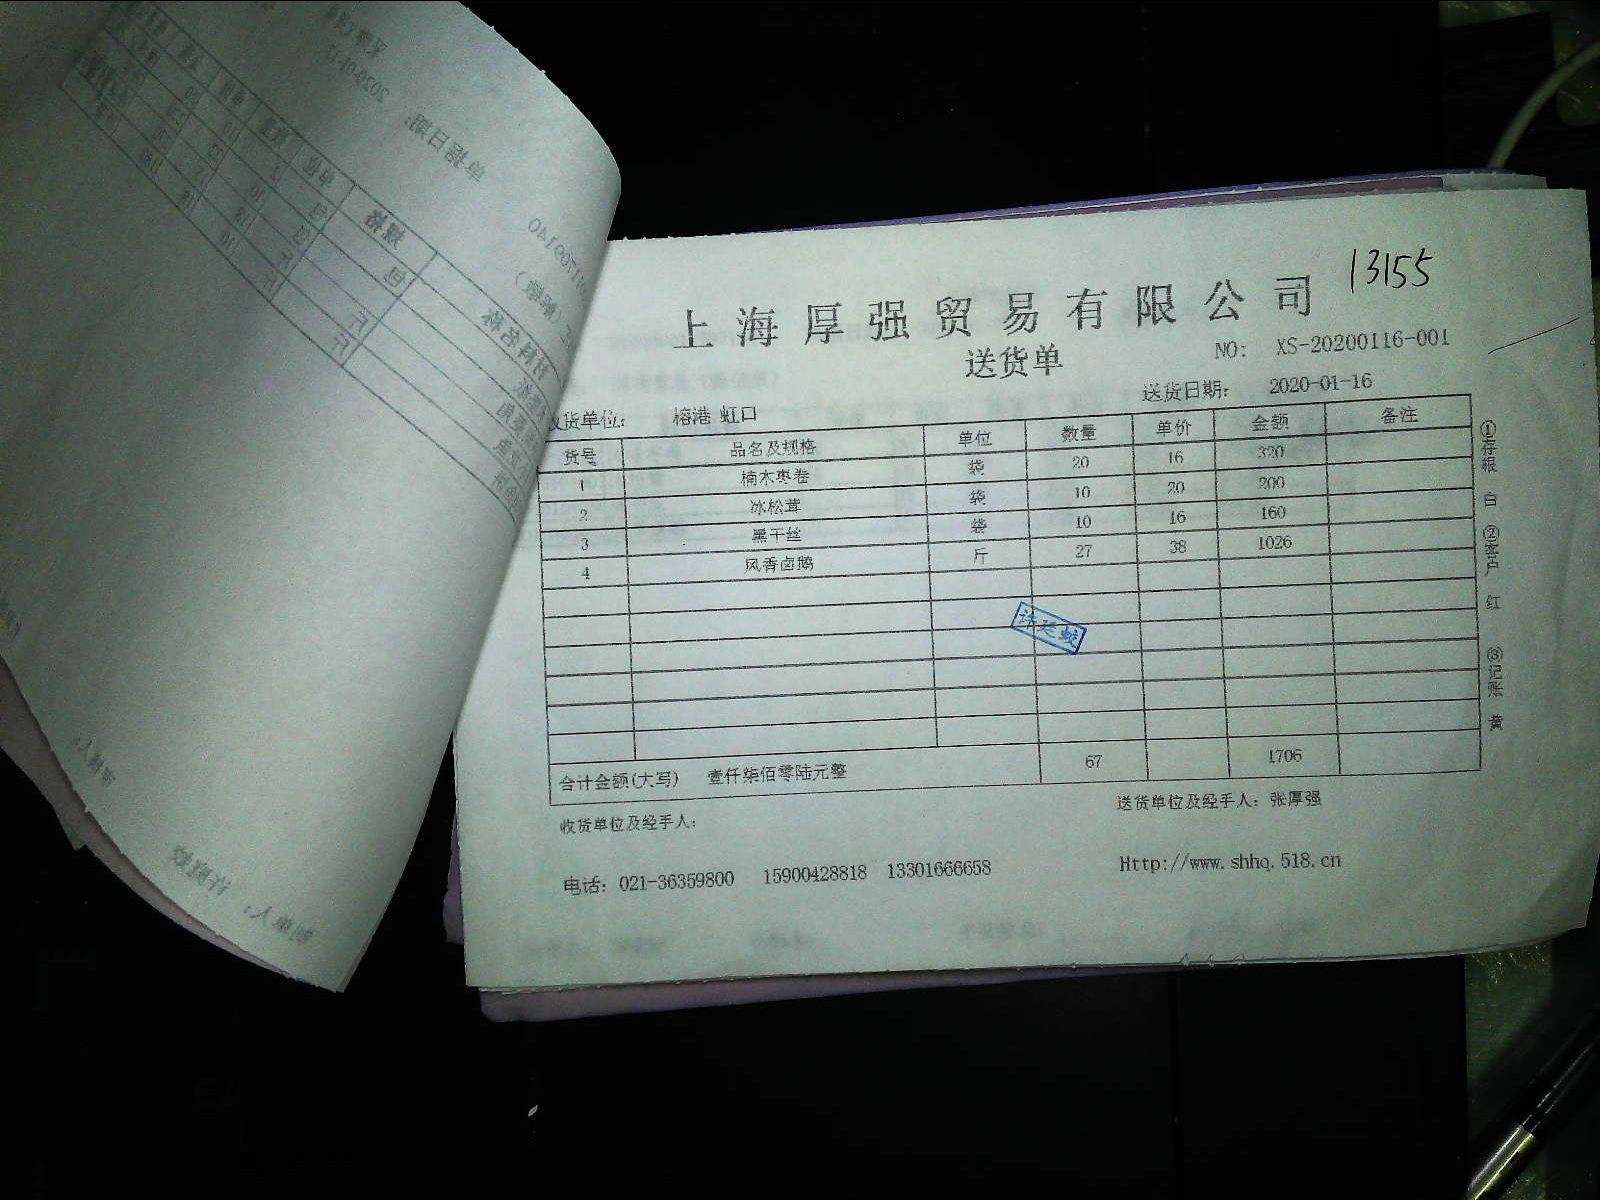 13155
上海厚强贸易有限公司
送货单
NO: XS-20200116-001
送货日期: 2020-01-16
货单位: 榕港 虹口
货号 品名及规格 单位 数量 单价 金额 备注
1 楠木枣卷 袋 20 16 320
2 冰松茸 袋 10 20 200
3 黑干丝 袋 10 16 160
4 风香卤鹅 斤 27 38 1026
许廷蛟
合计金额(大写) 壹仟柒佰零陆元整 67 1706
收货单位及经手人: 送货单位及经手人: 张厚强
电话: 021-36359800 15900428818 13301666658 Http://www.shhq.518.cn
①存根 白 ②客户 红 ③记账 黄
单据日期: 2020-01-17
规格
材料名称
制单人: